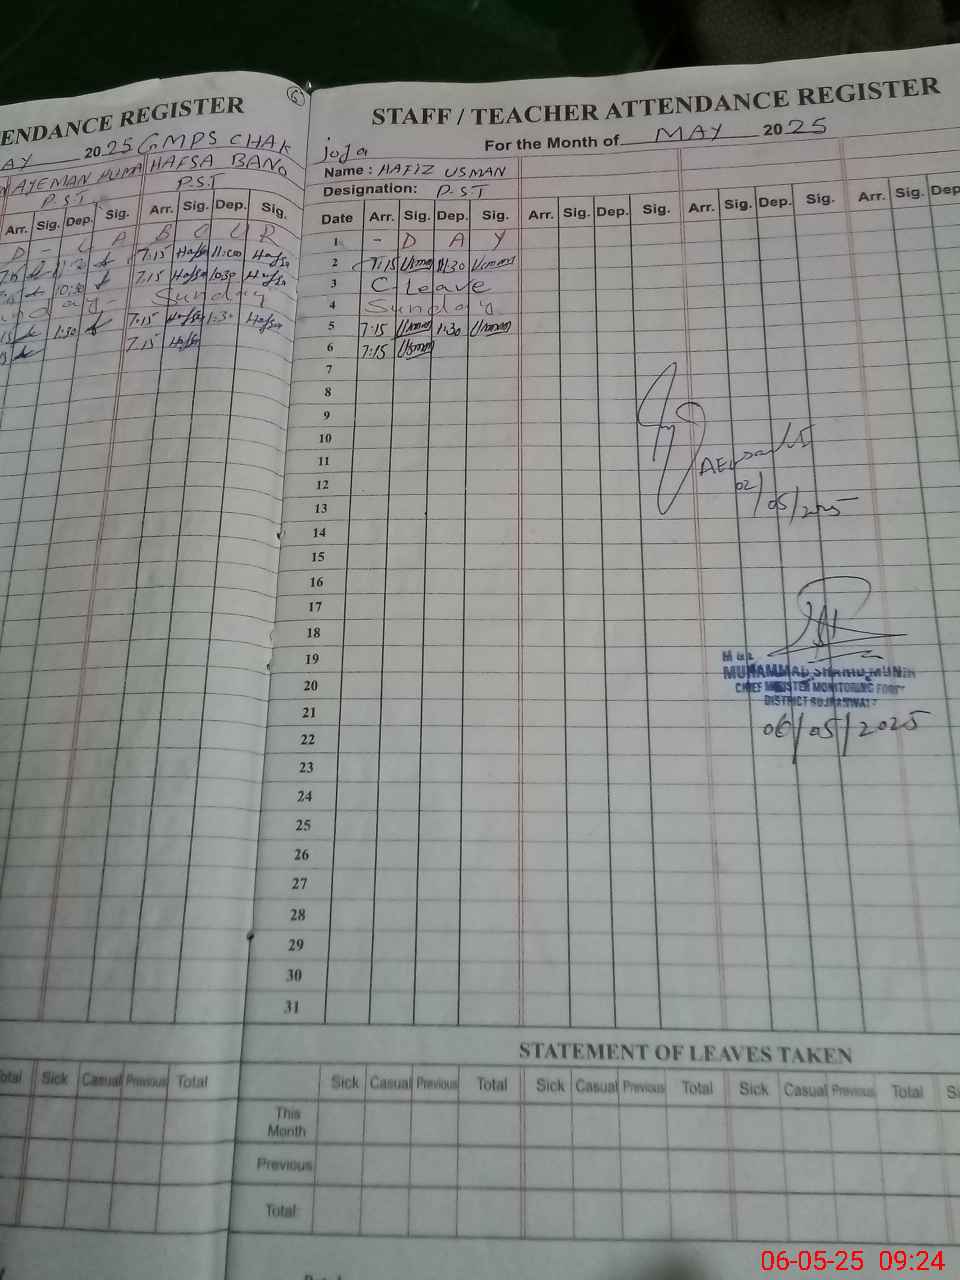 ENDANCE REGISTER
AY 2025 GMPS CHAK
AYEMAN HUMA HAFSA BANO
P.S.T P.S.T
Arr. Sig. Dep. Sig. Arr. Sig. Dep. Sig.
D - L A B O U R
7:15 Hafsa 11:00 Hafsa
10:30 7:15 Hafsa 10:30 Hafsa
Sunday
1:30 7:15 Hafsa 1:30 Hafsa
7:15 Hafsa
Total Sick Casual Previous Total
6
STAFF / TEACHER ATTENDANCE REGISTER
joJa For the Month of MAY 2025
Name : HAFIZ USMAN
Designation: P.S.T
Date Arr. Sig. Dep. Sig. Arr. Sig. Dep. Sig. Arr. Sig. Dep. Sig. Arr. Sig. Dep
1 - D A Y
2 7:15 Usman 11:30 Usman
3 C Leave
4 Sunday
5 7:15 Usman 1:30 Usman
6 7:15 Usman
7
8
9
10
11
12
13
14
15
16
17
18
19
20
21
22
23
24
25
26
27
28
29
30
31
02/05/2025
MUHAMMAD SHAHID MUNIR
CHIEF MINISTER MONITORING FORCE
DISTRICT GUJRANWALA
06/05/2025
STATEMENT OF LEAVES TAKEN
Sick Casual Previous Total Sick Casual Previous Total Sick Casual Previous Total Si
This Month
Previous
Total
06-05-25 09:24